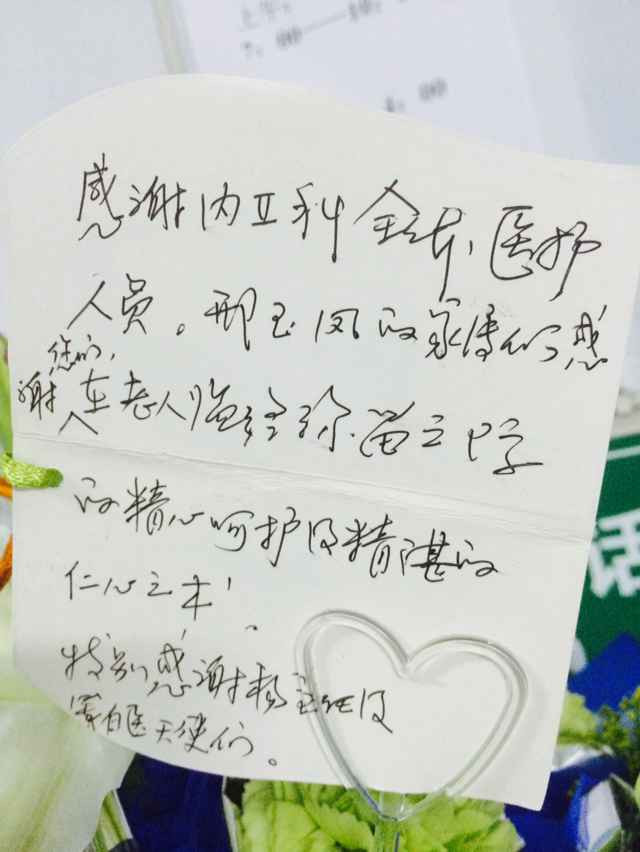 上午：
7：00——10：
：00
感谢内五科全体医护
人员。邢玉凤的家属们感
您们，
谢在老人临终弥留之际
的精心呵护及精湛的
仁心之术！
特别感谢杨主任及
白医天使们。
话